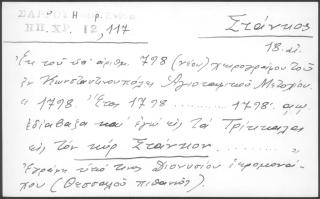 Στάνκος
ΗΠ. ΧΡ. 12, 117
18. αἰ.
Ἐκ τοῦ ὑπ' ἀριθμ. 798 (νέου) χειρογράφου τοῦ
ἐν Κωνσταντινουπόλει Ἁγιοταφιτικοῦ Μετοχίου.
« 1798 Ἔτος 1798 ......... 1798.
ἐδιάβαζα καὶ ἐγὼ εἰς τὰ Τρίκκαλα
εἰς τὸν κὺρ Στάνκον.
Ἐγράφη ὑπό τινος Διονυσίου ἱερομονά-
χου (Θεσσαλοῦ πιθανῶς).